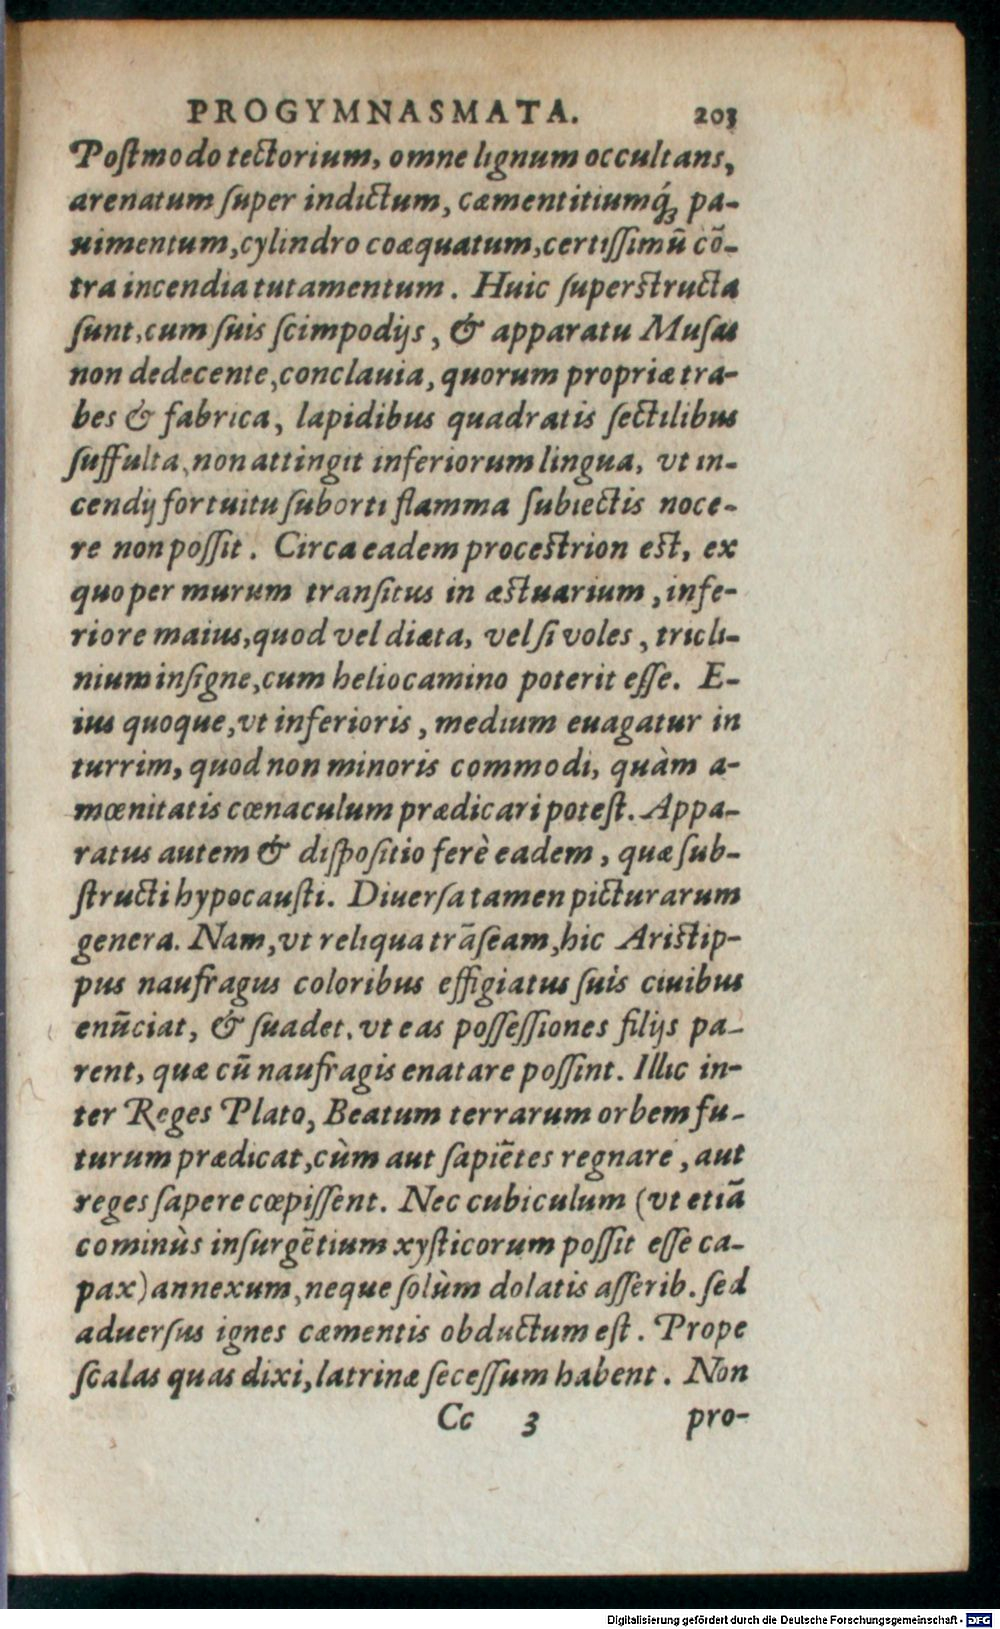 PROGYMNASMATA. 203
Postmodo tectorium, omne lignum occultans,
arenatum super indictum, cæmentitiumq́; pa-
uimentum, cylindro coæquatum, certissimū cō-
tra incendia tutamentum. Huic superstructa
sunt, cum suis scimpodijs, & apparatu Musæ
non dedecente, conclauia, quorum propriæ tra-
bes & fabrica, lapidibus quadratis sectilibus
suffulta, non attingit inferiorum lingua, vt in-
cendij fortuitu suborti flamma subiectis noce-
re non possit. Circa eadem procestrion est, ex
quo per murum transitus in æstuarium, infe-
riore maius, quod vel diæta, vel si voles, tricli-
nium insigne, cum heliocamino poterit esse. E-
ius quoque, vt inferioris, medium euagatur in
turrim, quod non minoris commodi, quàm a-
mœnitatis cœnaculum prædicari potest. Appa-
ratus autem & dispositio ferè eadem, quæ sub-
structi hypocausti. Diuersa tamen picturarum
genera. Nam, vt reliqua trāseam, hic Aristip-
pus naufragus coloribus effigiatus suis ciuibus
enūciat, & suadet, vt eas possessiones filijs pa-
rent, quæ cū naufragis enatare possint. Illic in-
ter Reges Plato, Beatum terrarum orbem fu-
turum prædicat, cùm aut sapiētes regnare, aut
reges sapere cœpissent. Nec cubiculum (vt etiā
cominùs insurgētium xysticorum possit esse ca-
pax) annexum, neque solùm dolatis asserib. sed
aduersus ignes cæmentis obductum est. Prope
scalas quas dixi, latrinæ secessum habent. Non
Cc 3 pro-
Digitalisierung gefördert durch die Deutsche Forschungsgemeinschaft - DFG